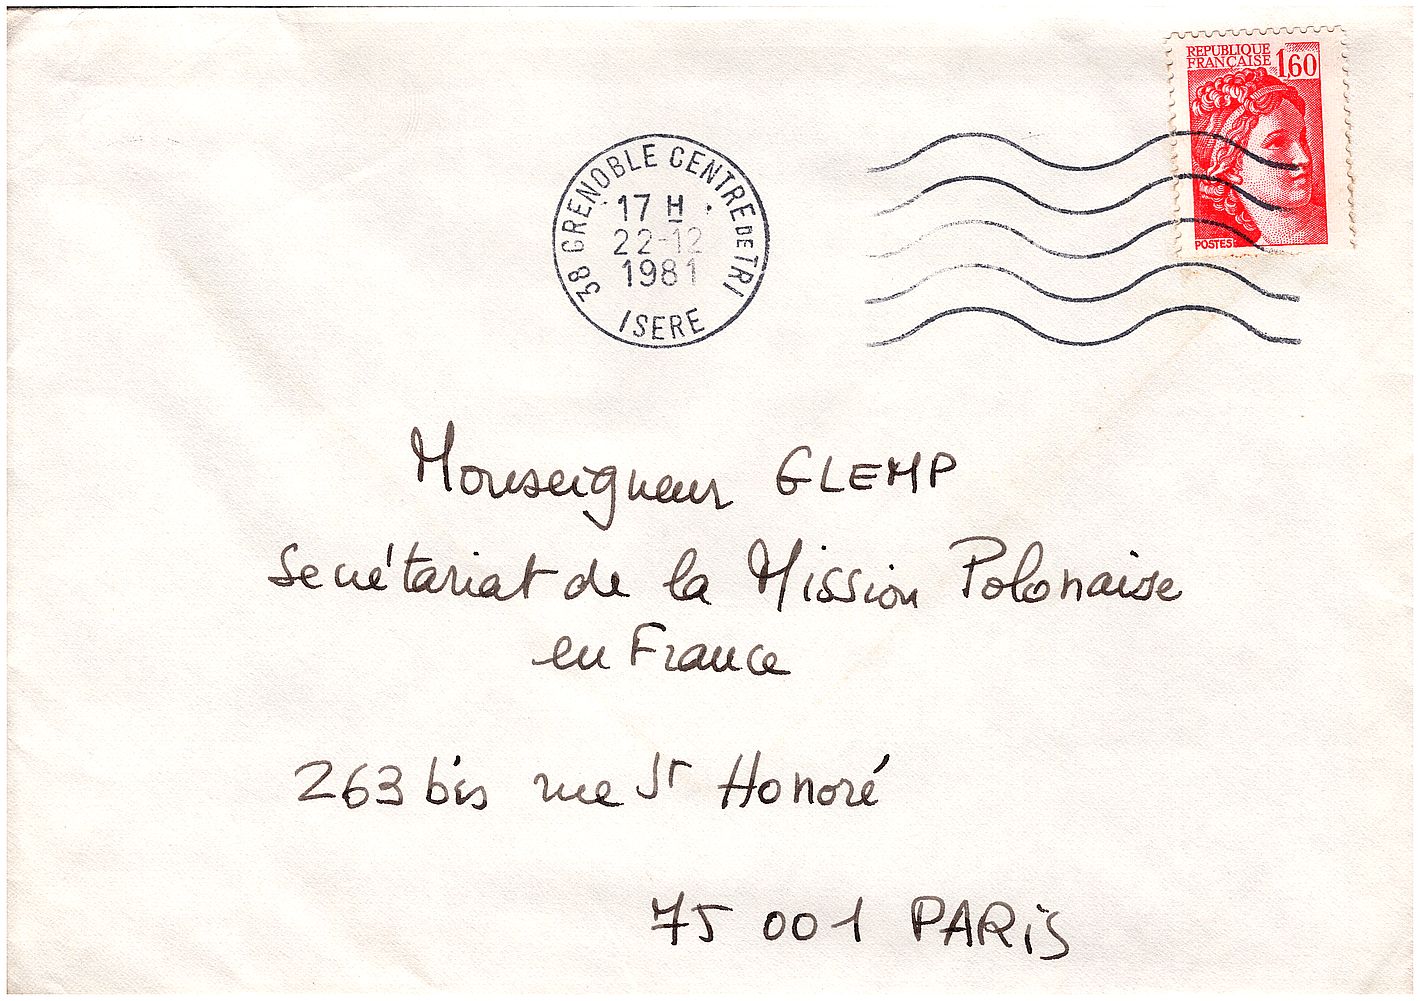 REPUBLIQUE
FRANÇAISE 1,60
POSTES
38 GRENOBLE CENTRE DE TRI
17 H
22-12
1981
ISERE
Monseigneur GLEMP
Secrétariat de la Mission Polonaise
en France
263 bis rue St Honoré
75 001 PARIS